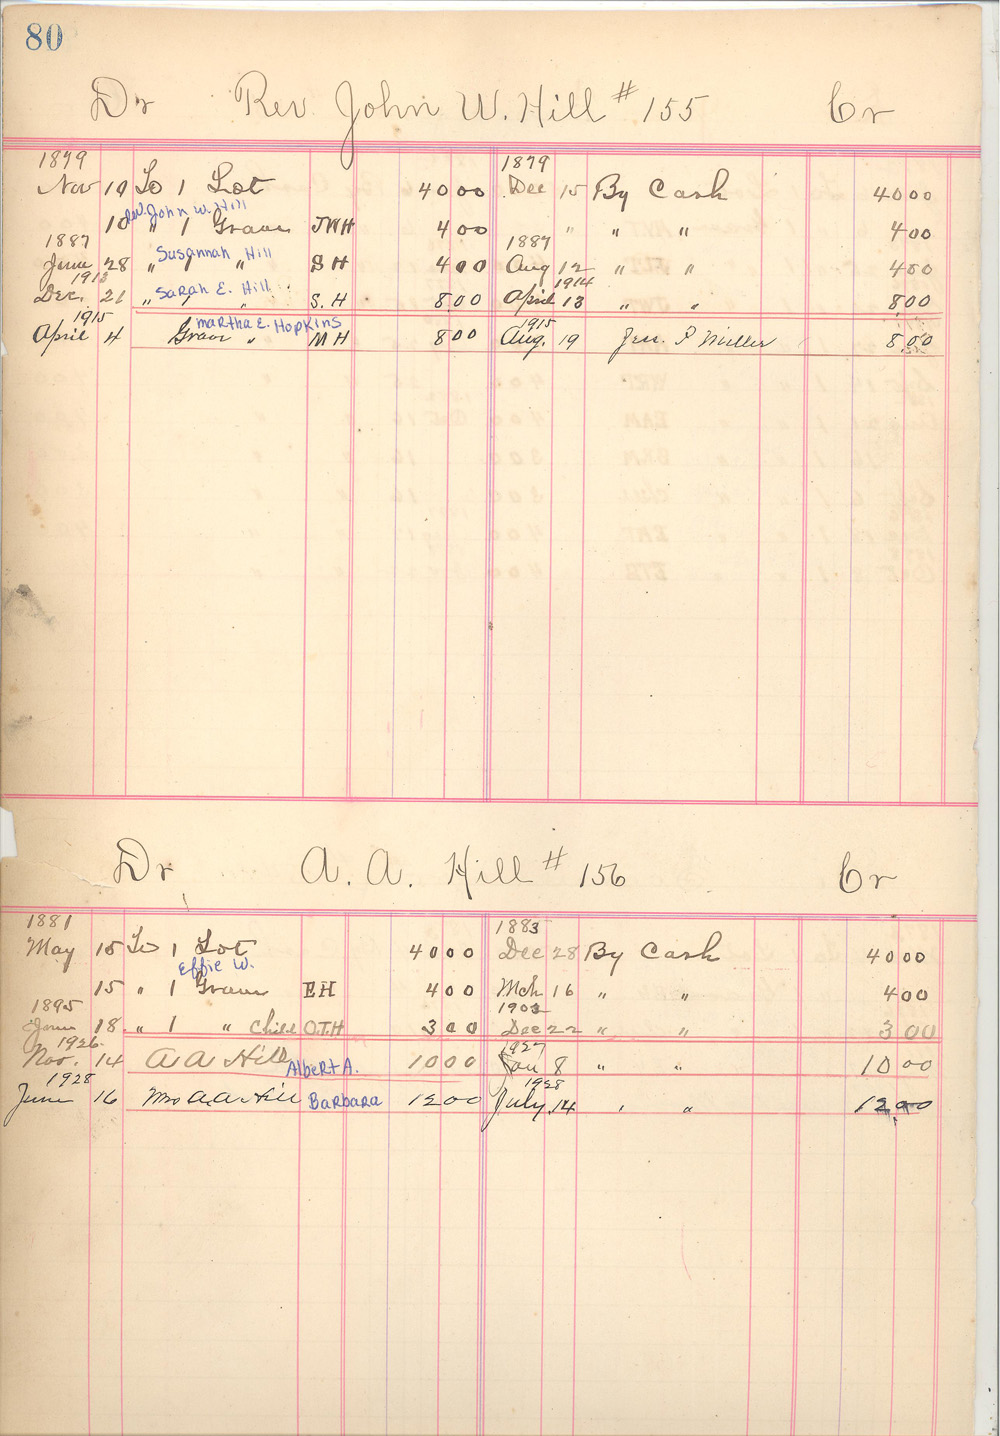 80
Dr Rev. John W. Hill # 155 Cr
1879 1879
Nov 19 To 1 Lot 40 00 Dec 15 By Cash 40 00
Rev. John W. Hill
10 " 1 Grave JWH 4 00 " " " 4 00
1887 1887
Susannah Hill
June 28 " 1 " S H 4 00 Aug 12 " " 4 00
1913 1914
Sarah E. Hill
Dec. 21 " 1 " S. H 8 00 April 13 " " 8 00
1915 1915
Martha E. Hopkins
April 4 Grave " M H 8 00 Aug. 19 Jno. P Miller 8 00
Dr A. A. Hill # 156 Cr
1881 1883
May 15 To 1 Lot 40 00 Dec 28 By Cash 40 00
Effie W.
15 " 1 Grave E H 4 00 Mch 16 " " 4 00
1895 1902
June 18 " 1 " Child O.T.H 3 00 Dec 22 " " 3 00
1926 1927
Nov. 14 A A Hill Albert A. 10 00 Jan 8 " " 10 00
1928 1928
June 16 Mrs A. A Hill Barbara 12 00 July 14 " " 12 00